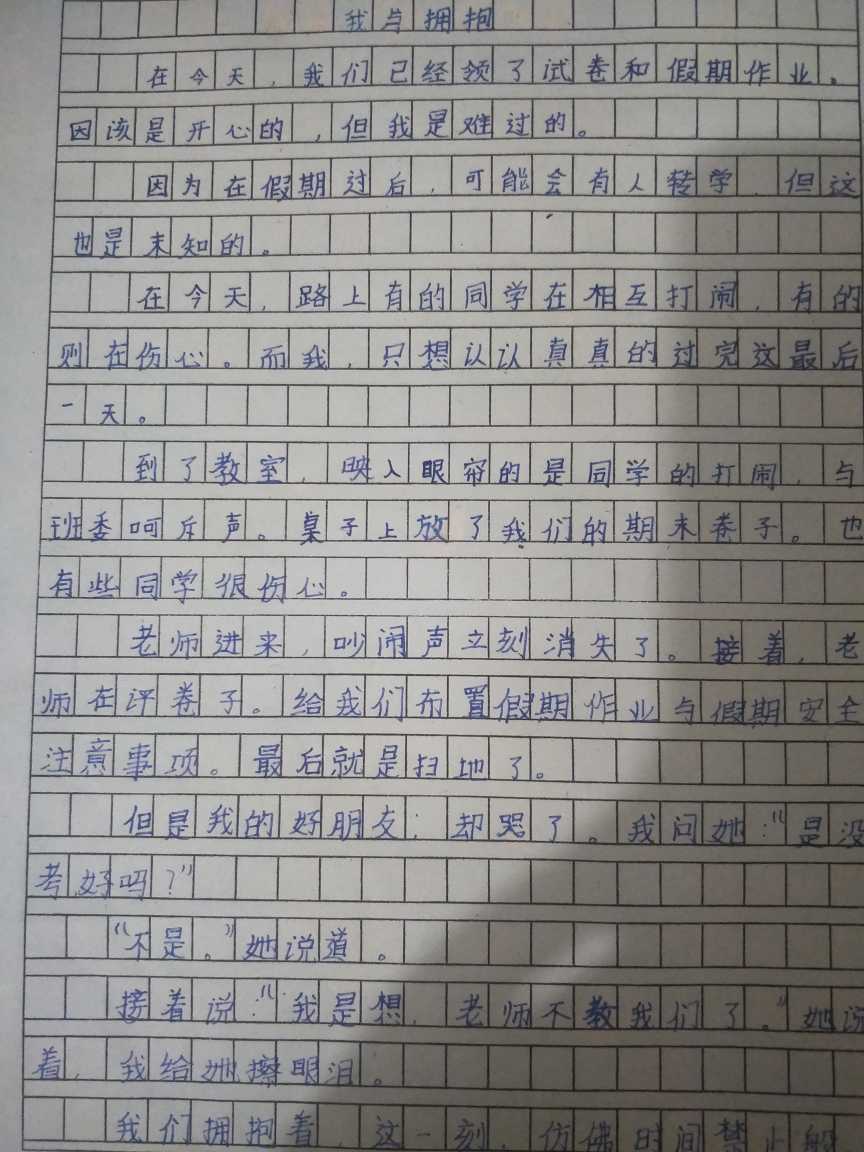 我与拥抱
在今天，我们已经领了试卷和假期作业。
因该是开心的，但我是难过的。
因为在假期过后，可能会有人转学，但这
也是未知的。
在今天，路上有的同学在相互打闹，有的
则在伤心。而我，只想认认真真的过完这最后
一天。
到了教室，映入眼帘的是同学的打闹，与
班委呵斥声。桌子上放了我们的期末卷子。也
有些同学很伤心。
老师进来，吵闹声立刻消失了。接着，老
师在评卷子。给我们布置假期作业与假期安全
注意事项。最后就是扫地了。
但是我的好朋友，却哭了。我问她：“是没
考好吗？”
“不是。”她说道。
接着说：“我是想，老师不教我们了。”她说
着，我给她擦眼泪。
我们拥抱着，这一刻，仿佛时间禁止般